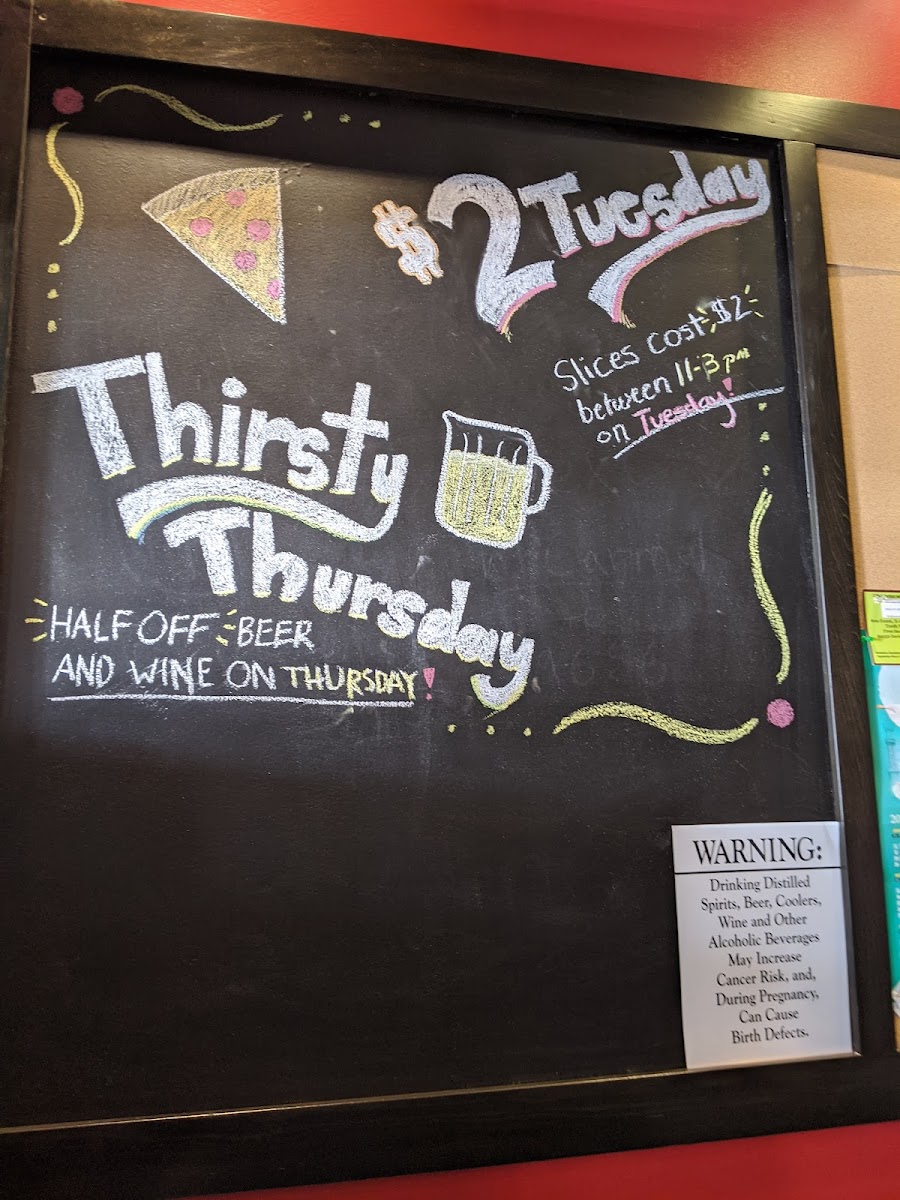 $2 Tuesday
Slices cost $2
between 11-3pm
on Tuesday!
Thirsty
Thursday
HALF OFF BEER
AND WINE ON THURSDAY!
WARNING:
Drinking Distilled
Spirits, Beer, Coolers,
Wine and Other
Alcoholic Beverages
May Increase
Cancer Risk, and,
During Pregnancy,
Can Cause
Birth Defects.